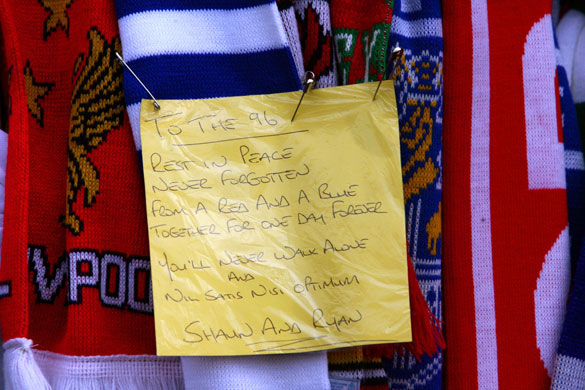 To The 96
Rest in Peace
Never Forgotten
From A Red And A Blue
Together For One Day Forever
You'll Never Walk Alone
And
Nil Satis Nisi Optimum
Shaun And Ryan
VPOO